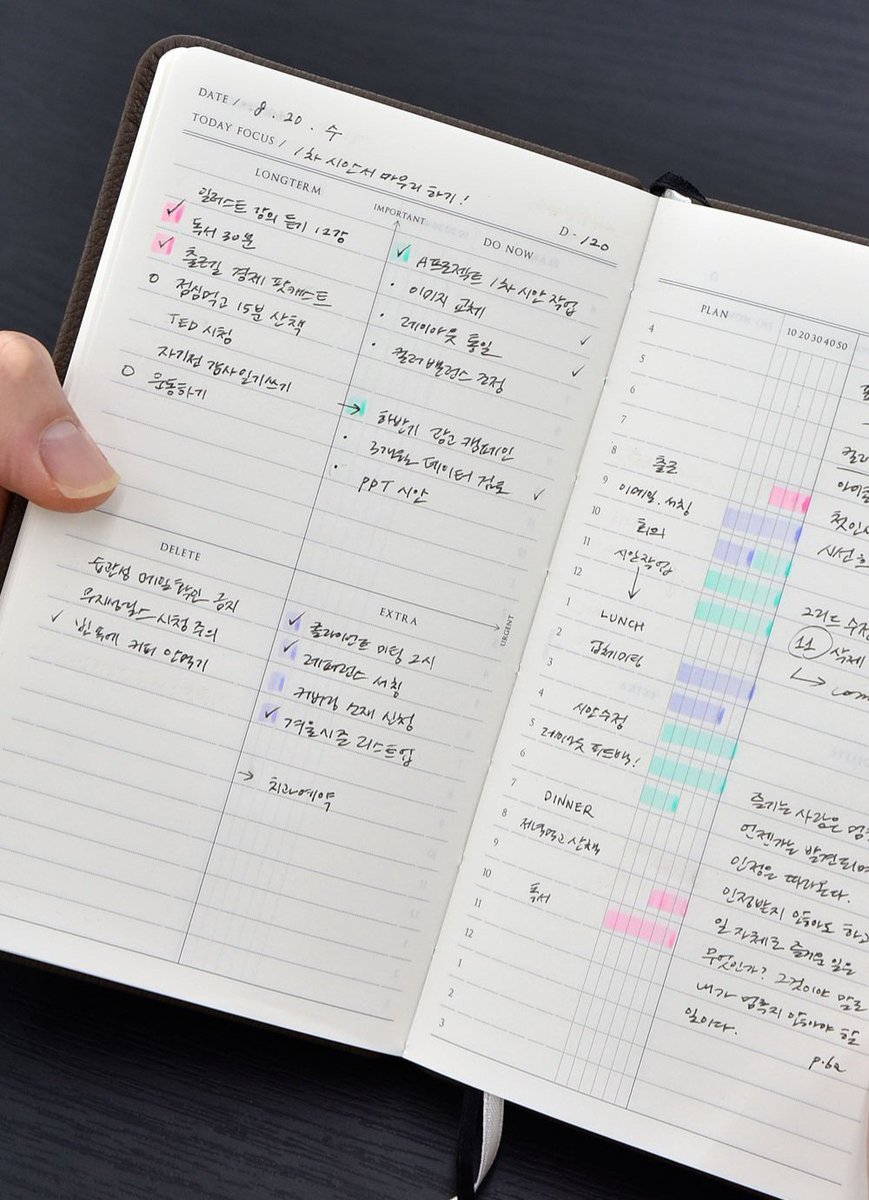 DATE / 8. 20. 수
TODAY FOCUS / 1차 시안서 마무리하기!
D-120
LONGTERM
일러스트 강의 듣기 12강
독서 30분
출근길 경제 팟캐스트
점심먹고 15분 산책
TED 시청
자기전 감사일기쓰기
운동하기
IMPORTANT
DO NOW
A프로젝트 1차 시안 작업
이미지 교체
레이아웃 통일
컬러밸런스 조정
하반기 광고 캠페인
3개월 데이터 검토
PPT 시안
DELETE
습관성 메일확인 금지
시청 주의
빈속에 커피 안먹기
EXTRA
URGENT
클라이언트 미팅 2시
레퍼런스 서칭
커버링 소재 신청
겨울시즌 리스트업
치과예약
PLAN
10 20 30 40 50
4
5
6
7
8 출근
9 이메일. 서칭
10 회의
11 시안작업
12
1 LUNCH
2 업체미팅
3
4 시안수정
5 레이아웃 피드백!
6
7 DINNER
8 저녁먹고 산책
9
10 독서
11
12
1
2
3
그리드 수정
11 삭제
즐기는 사람은
언젠가는 발견되며
인정은 따라온다.
인정받지 않아도 하고
일 자체로 즐거운 일은
무엇인가? 그것이야 말로
내가 멈추지 않아야 할
일이다.